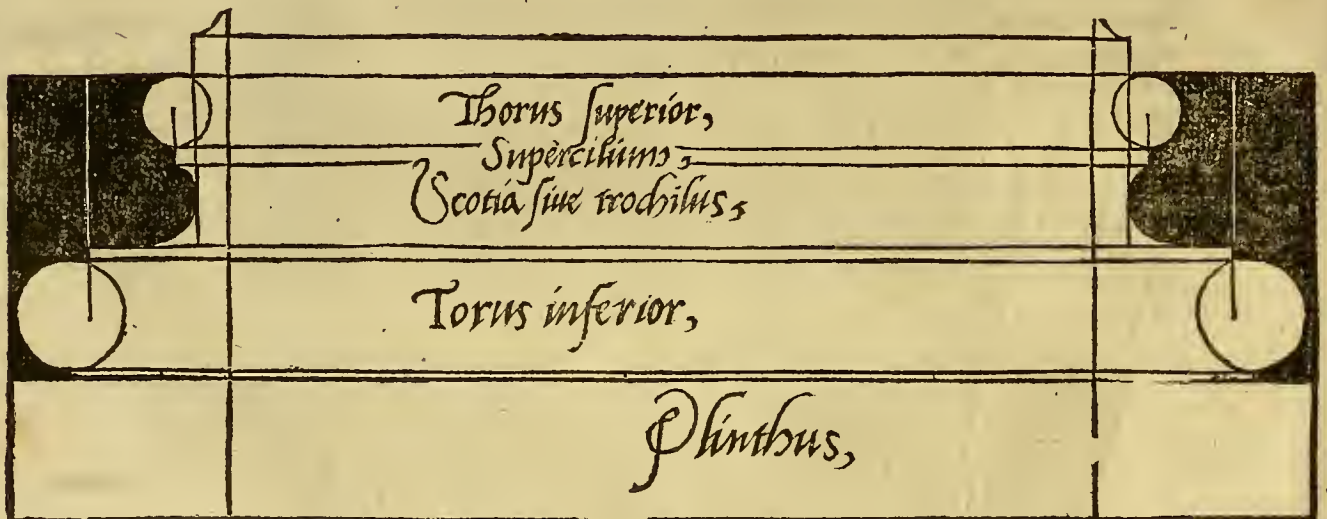 Thorus superior,
Supercilium,
Scotia siue trochilus,
Torus inferior,
Plinthus,